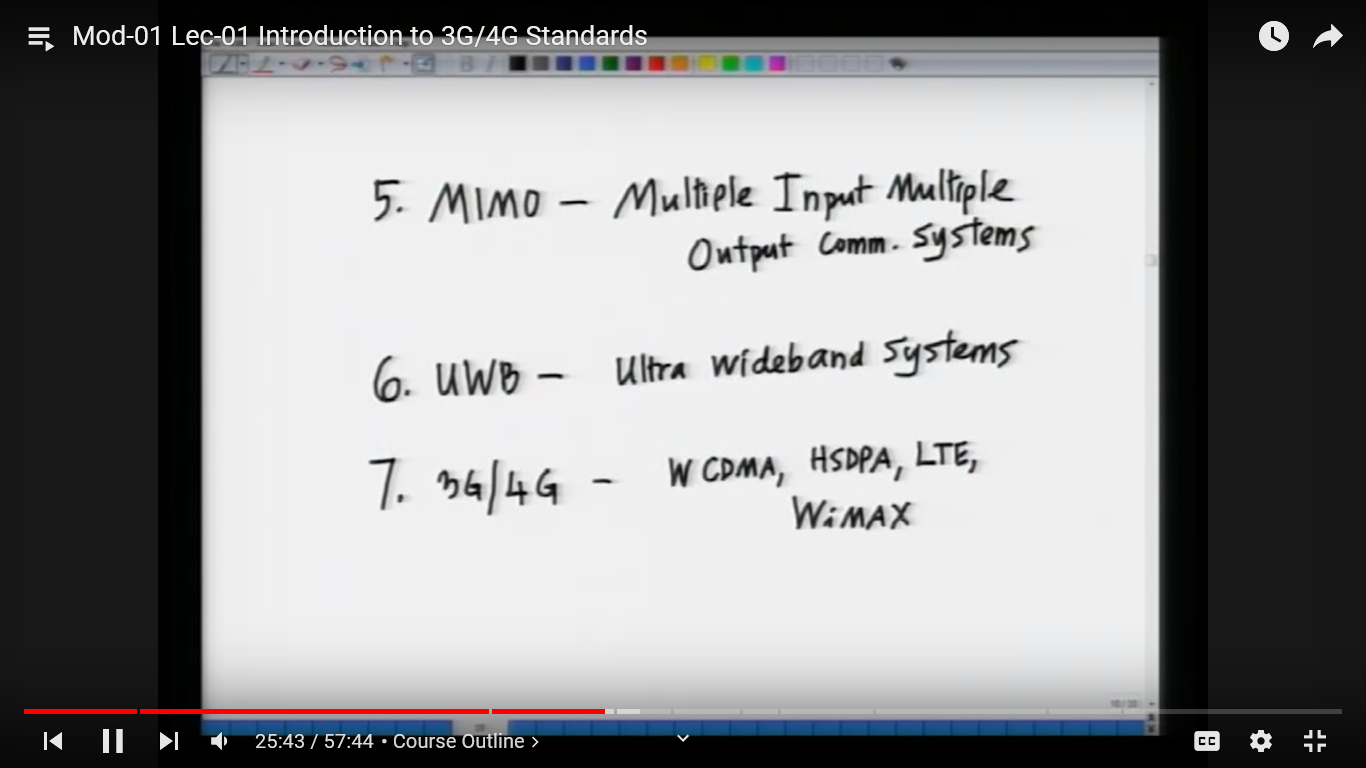 Mod-01 Lec-01 Introduction to 3G/4G Standards
5. MIMO - Multiple Input Multiple
Output Comm. Systems
6. UWB - Ultra Wideband Systems
7. 3G/4G - WCDMA, HSDPA, LTE,
WiMAX
25:43 / 57:44 • Course Outline >
CC